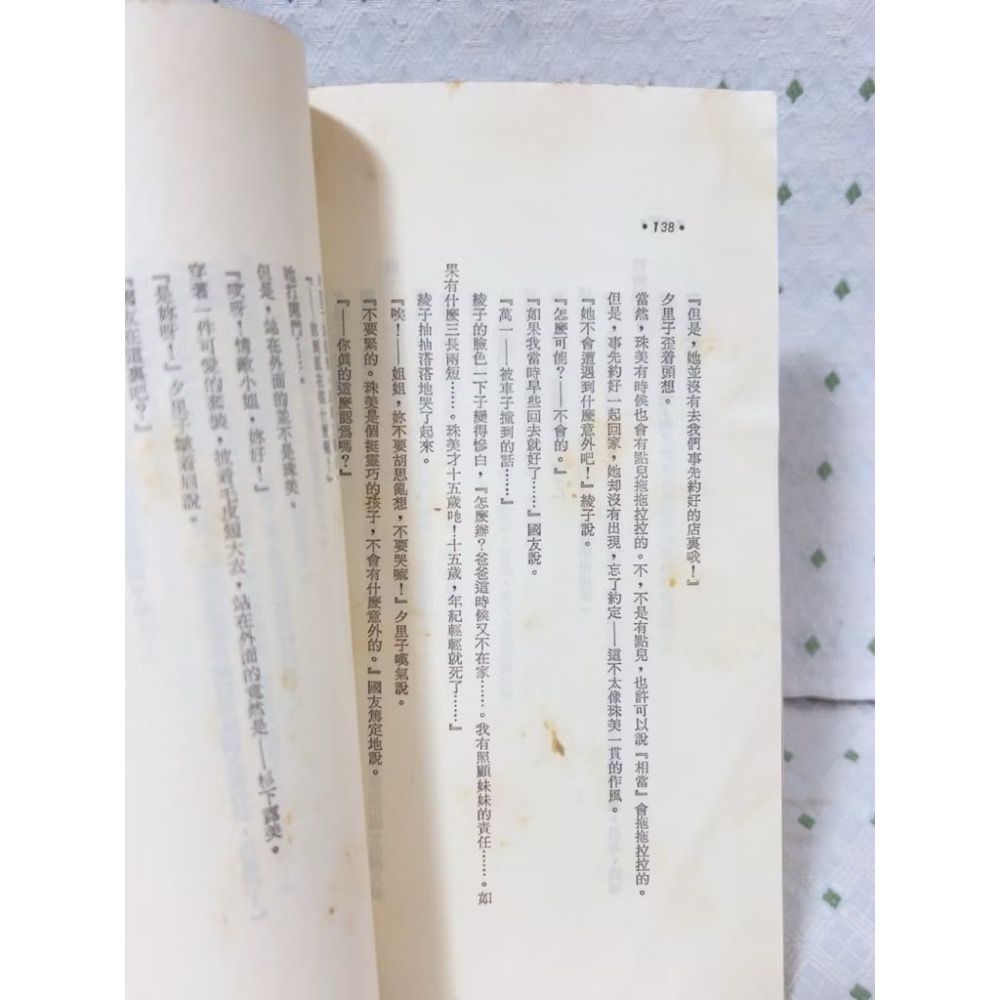 •138•
『但是，她並沒有去我們事先約好的店裏哦！』
夕里子歪着頭想。
當然，珠美有時候也會有點兒拖拖拉拉的。不，不是有點兒，也許可以說『相當』會拖拖拉拉的。
但是，事先約好一起回家，她却沒有出現，忘了約定——這不太像珠美一貫的作風。
『她不會遭遇到什麼意外吧！』綾子說。
『怎麼可能？——不會的。』
『如果我當時早些回去就好了……』國友說。
『萬一——被車子撞到的話……』
綾子的臉色一下子變得慘白，『怎麼辦？爸爸這時候又不在家……。我有照顧妹妹的責任……。如
果有什麼三長兩短……。珠美才十五歲吔！十五歲，年紀輕輕就死了……』
綾子抽抽搭搭地哭了起來。
『唉！——姐姐，妳不要胡思亂想，不要哭嘛！』夕里子嘆氣說。
『不要緊的。珠美是個挺靈巧的孩子，不會有什麼意外的。』國友篤定地說。
『——你眞的這麼認爲嗎？』
她打開門……。
但是，站在外面的並不是珠美。
『哎呀！情敵小姐，妳好！』
穿著一件可愛的套裝，披着毛皮短大衣，站在外面的竟然是——杉下露美。
『是妳呀！』夕里子皺着眉說。
『國友在這裏吧？』